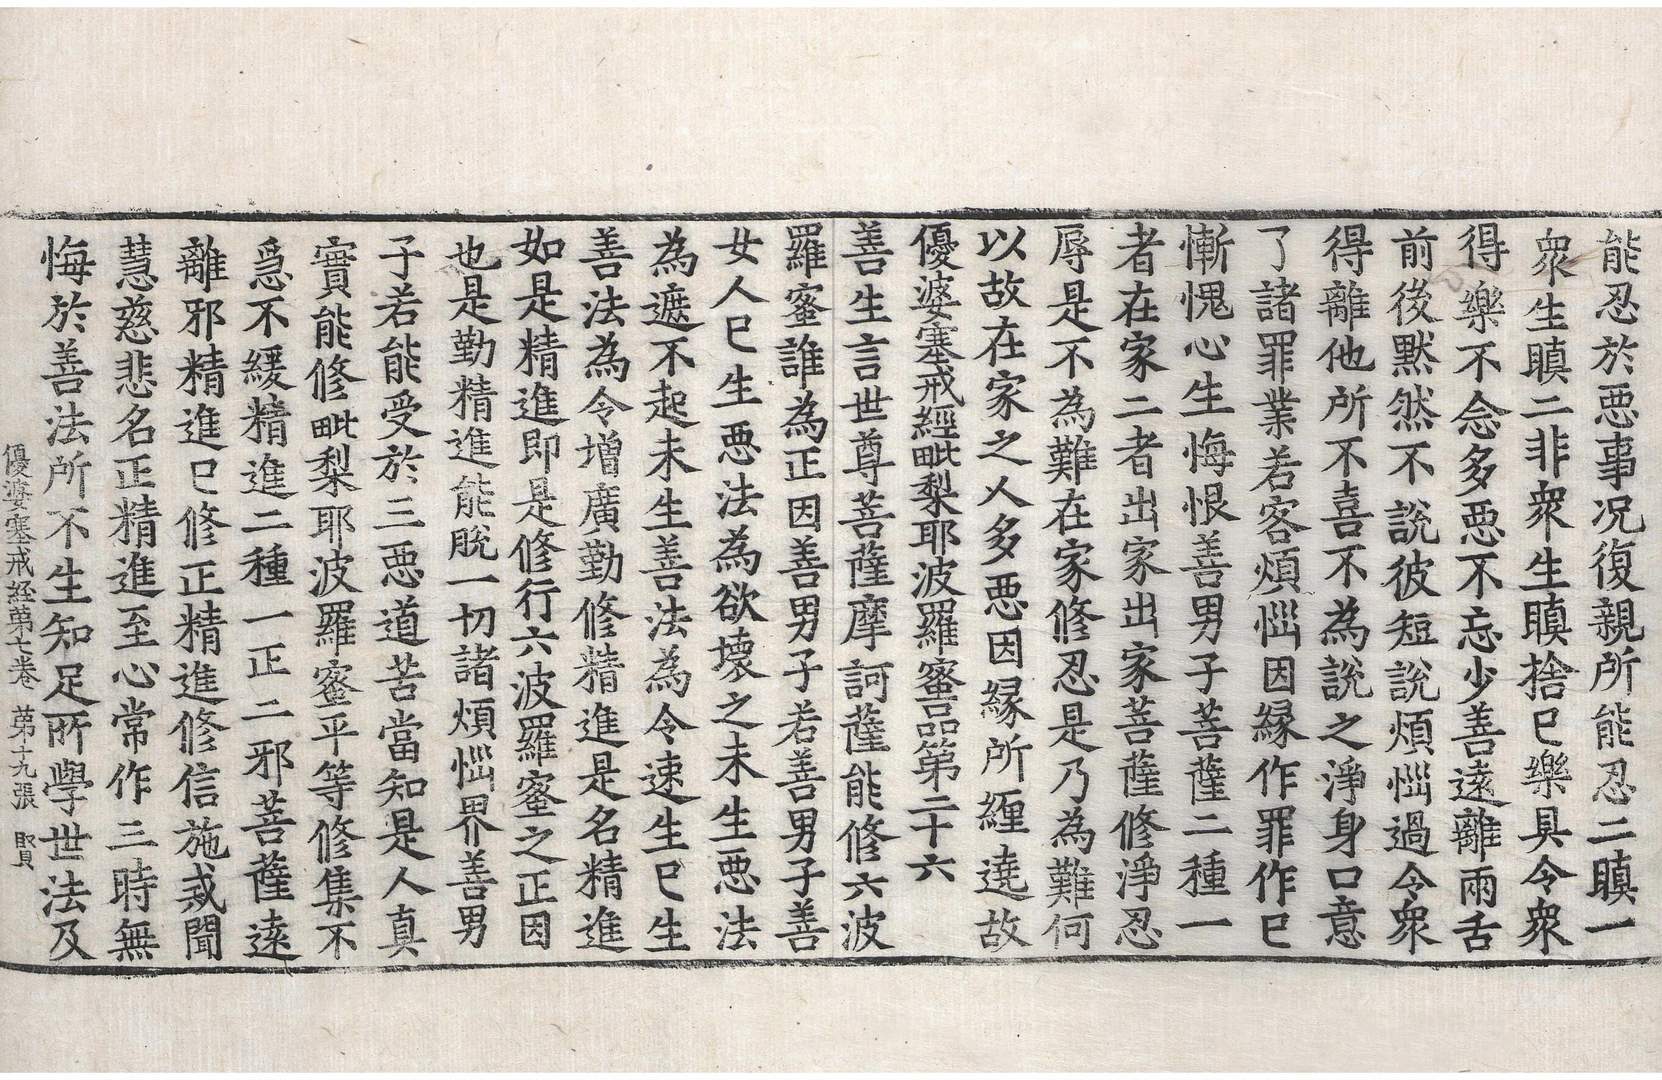 能忍於惡事况復親所能忍二瞋一
衆生瞋二非衆生瞋捨已樂具令衆
得樂不念多惡不忘少善遠離兩舌
前後默然不說彼短說煩惱過令衆
得離他所不喜不為說之淨身口意
了諸罪業若客煩惱因緣作罪作已
慚愧心生悔恨善男子菩薩二種一
者在家二者出家出家菩薩修淨忍
辱是不為難在家修忍是乃為難何
以故在家之人多惡因緣所纏遶故
優婆塞戒經毗梨耶波羅蜜品第二十六
善生言世尊菩薩摩訶薩能修六波
羅蜜誰為正因善男子若善男子善
女人已生惡法為欲壞之未生惡法
為遮不起未生善法為令速生已生
善法為令增廣勤修精進是名精進
如是精進即是修行六波羅蜜之正因
也是勤精進能脫一切諸煩惱界善男
子若能受於三惡道苦當知是人真
實能修毗梨耶波羅蜜平等修集不
急不緩精進二種一正二邪菩薩遠
離邪精進已修正精進修信施戒聞
慧慈悲名正精進至心常作三時無
悔於善法所不生知足所學世法及
優婆塞戒經第七卷 第十九張 賢